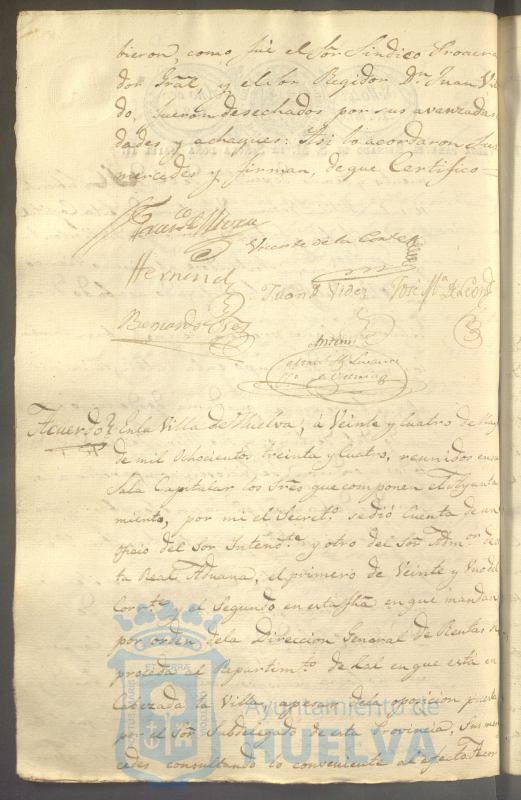 bieron, como fué el Sor. Sindico Procura
dor Gral, y el Sor Regidor Dn. Juan Vi
do, fueron desechados por sus avanzadas
dades y achaques: Asi lo acordaron Sus
mercedes y firman, de que Certifico =
Vicente de la Corte
Hernand
Juan Vides José Ma. de León
Bernardo
Antemi
Acuerdo En la Villa de Huelva, á Veinte y Cuatro de May
de mil Ochocientos treinta y Cuatro, reunidos en su
Sala Capitular los Sres que componen el Ayunta
miento, por mi el Secreto. se dió Cuenta de un
oficio del Sor Intendte. y otro del Sor Admor. de es
ta Real Aduana, el primero de Veinte y Uno del
Corrte. y el Segundo en esta fha en que mandan
por orden de la Direccion General de Rentas se
proceda al Repartimto. de Sal en que está en
Cabezada la Villa, apesar de la oposicion puesta
por el Sor Subdelegado de esta Provincia, sus mer
cedes consultando lo conveniente al efecto: Acor
Ayuntamiento de
HUELVA